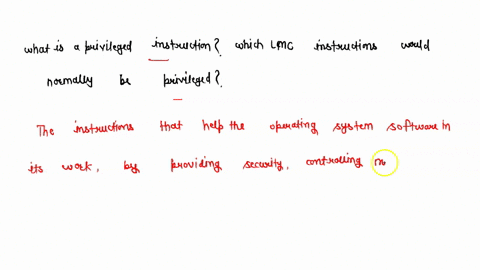 what is a privileged instruction? which LMC instructions would
normally be privileged?
The instructions that help the operating system software in
its work, by providing security, controlling